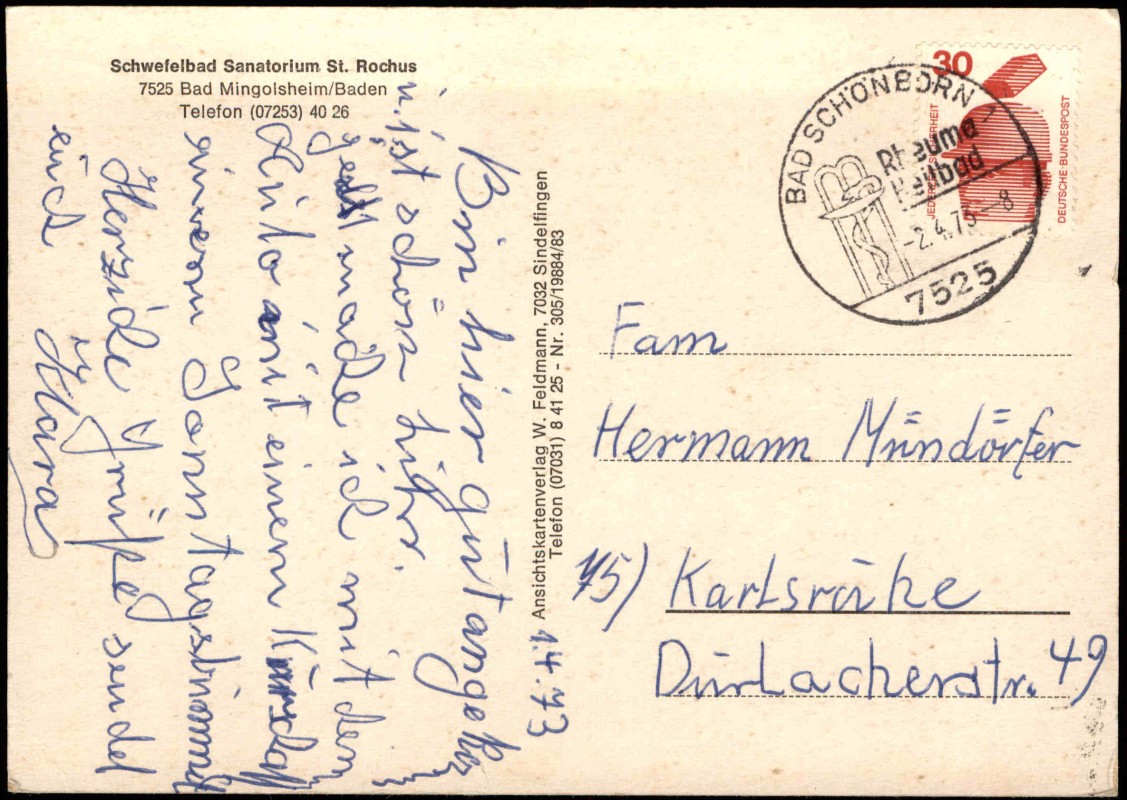 Schwefelbad Sanatorium St. Rochus
7525 Bad Mingolsheim/Baden
Telefon (07253) 40 26
1.4.73
Bin hier gut
u. ist schön hier.
ich mit dem
mit einem
einen
Herzlide Grüße sendet
euch
Klara
Ansichtskartenverlag W. Feldmann, 7032 Sindelfingen
Telefon (07031) 8 41 25 - Nr. 305/19884/83
30
JEDERZEIT SICHERHEIT
DEUTSCHE BUNDESPOST
BAD SCHÖNBORN
Rheuma
Heilbad
-2.4.73-8
7525
Fam
Hermann Mündörfer
75) Karlsruhe
Durlacherstr. 49